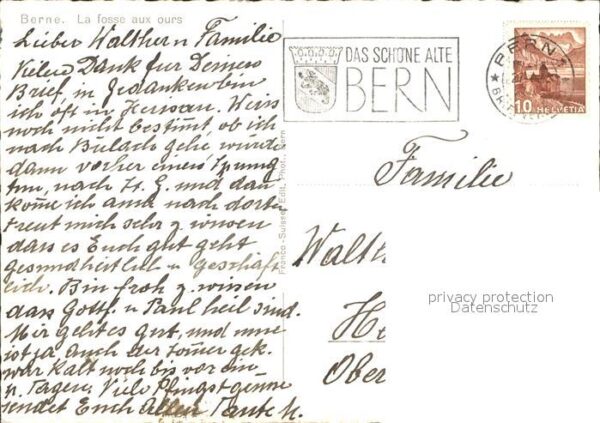 Berne. La fosse aux ours
Lieber Walther u Familie
Vielen Dank für Deinen
Brief, in Gedanken bin
ich oft in Herisau. Weis
noch nicht bestimt, ob ich
nach Bülach gehe würde
dann vorher einen Sprung
tun, nach St. G. und dan
kome ich auch nach dort.
Freut mich sehr z. wissen
dass es Euch gut geht
gesundheitlich u geschäft
lich. Bin froh z. wissen
dass Gottf. u Paul heil sind.
Mir geht es gut, und nun
ist ja auch der Somer gek.
war kalt noch bis vor ein
n. Tagen. Viele Pfingstgrüsse
sendet Euch Allen Tante H.
Franco-Suisse, Edit. Phot., Bern
DAS SCHÖNE ALTE
BERN
BERN
HELVETIA
10
Familie
Walth
H
Ober
privacy protection
Datenschutz